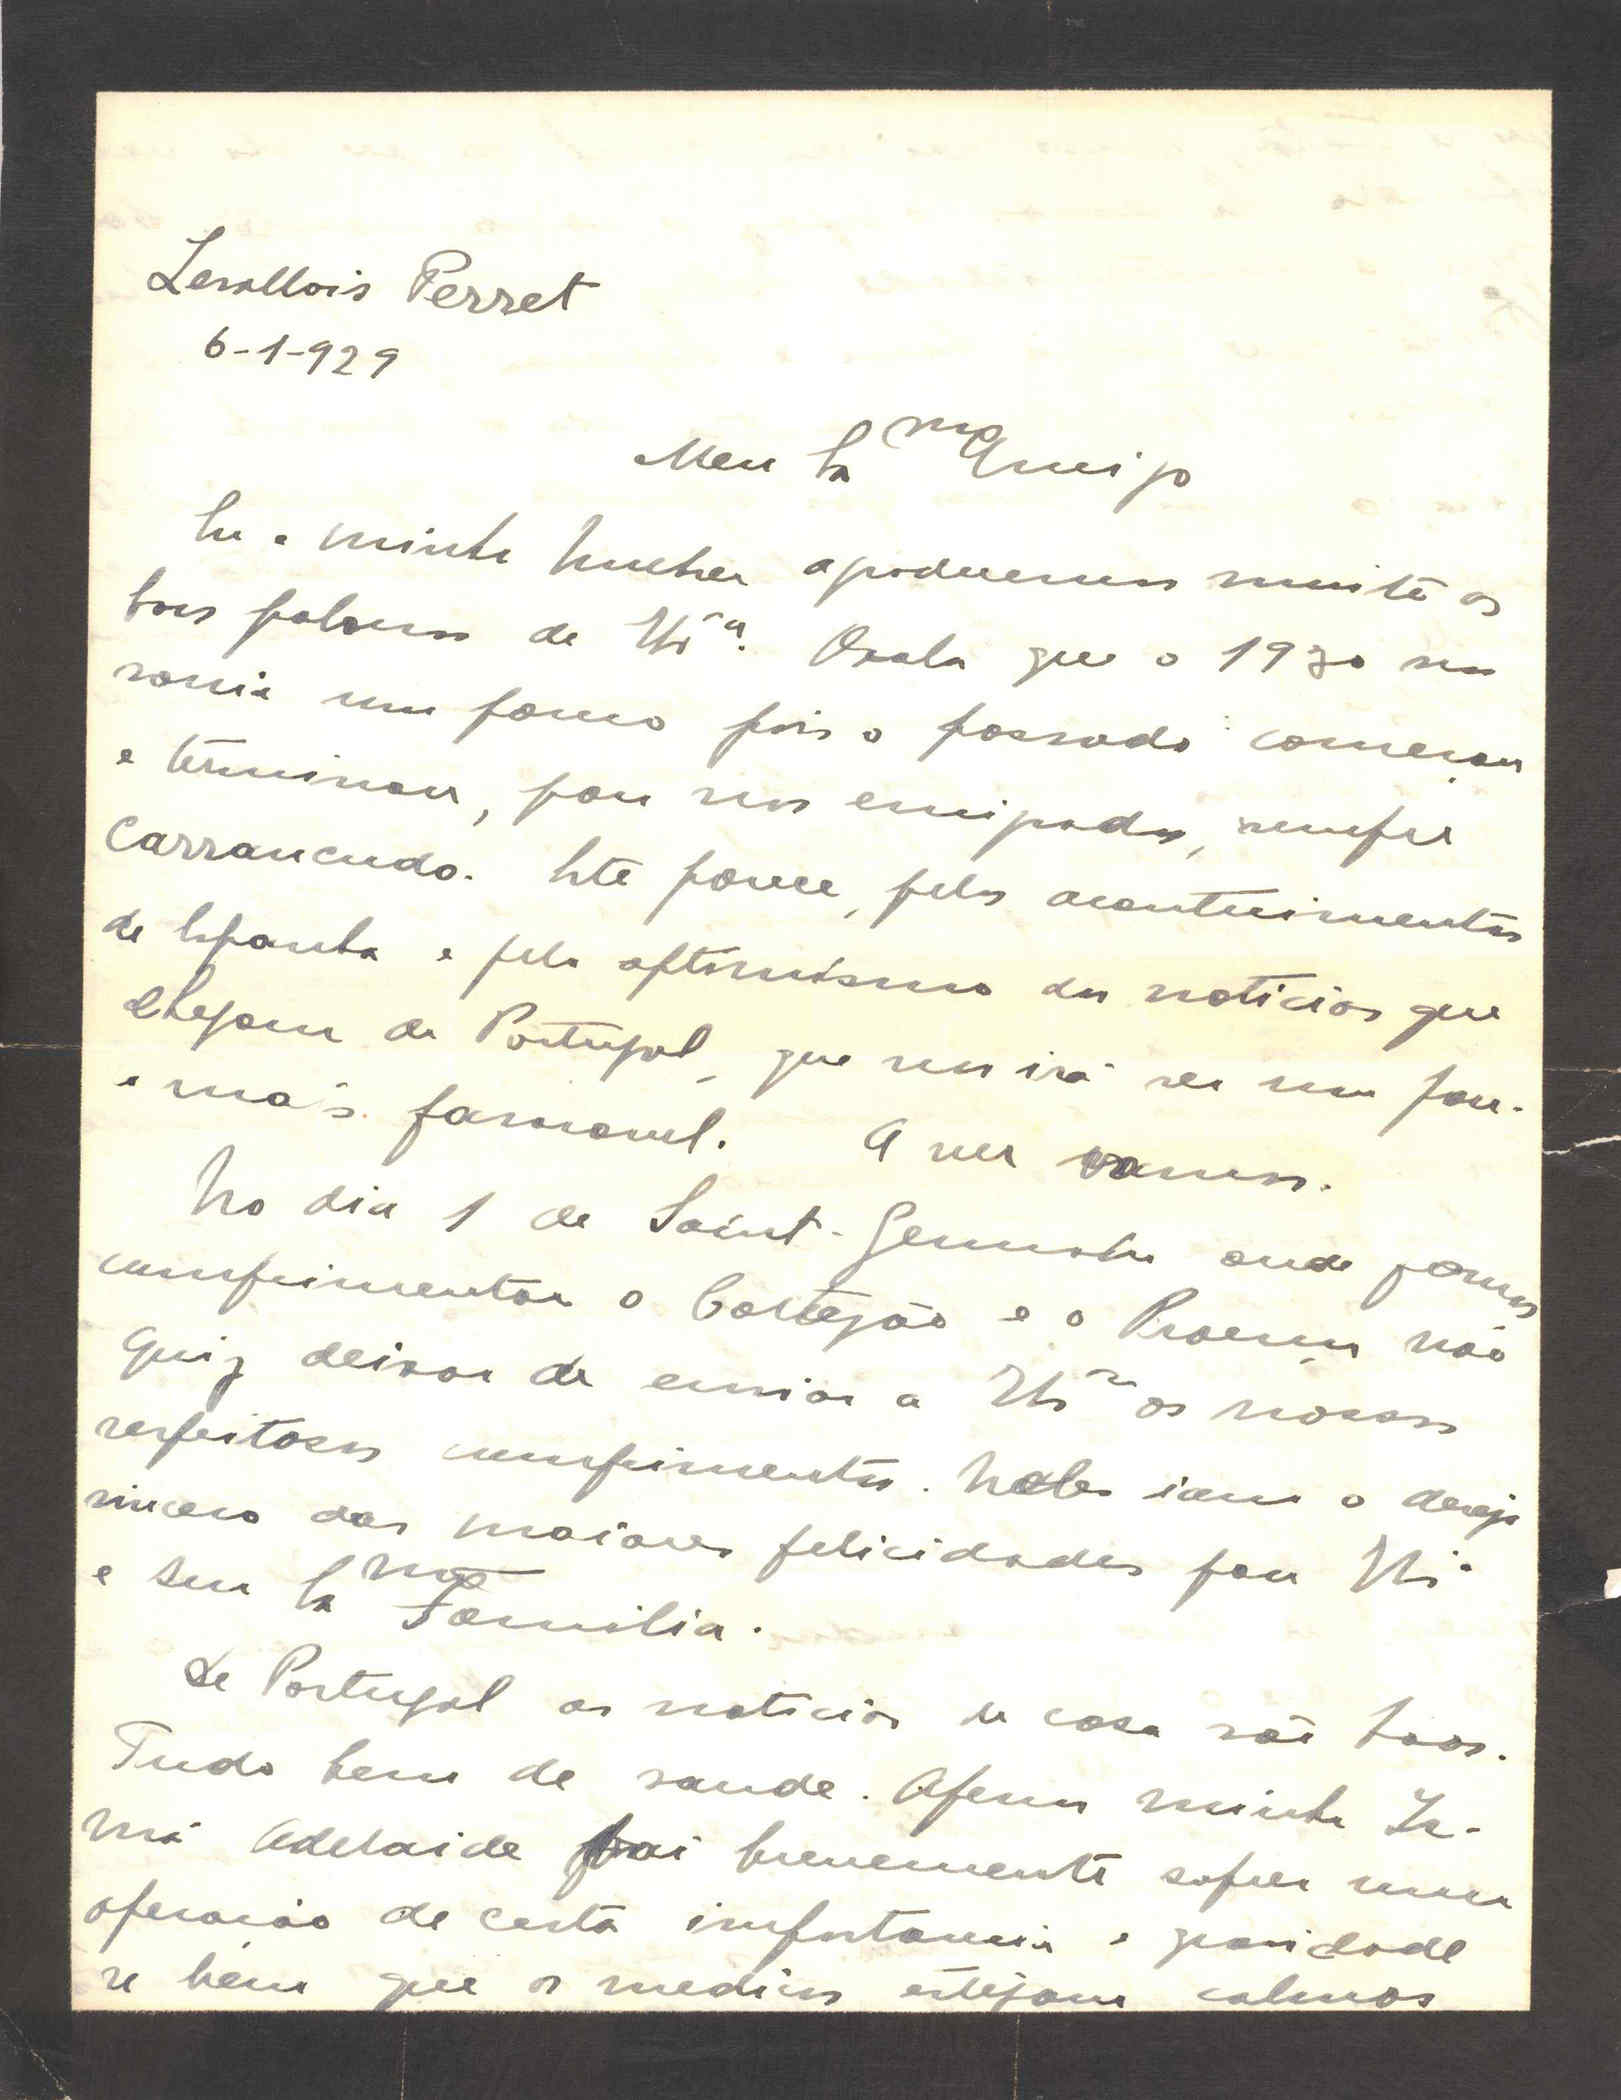 Levallois Perret
6-1-929
Meu Ex.mo Amigo
Eu e minha mulher agradecemos muito as
boas palavras de V. Ex.ª. Oxala que o 1930 nos
sorria um pouco pois o passado começou
e terminou, para nos emigrados, sempre
carrancudo. Este parece, pelos acontecimentos
de Espanha e pelo optimismo das noticias que
chegam de Portugal, que nos irá ser um pou-
o mais favoravel. A ver vamos.
No dia 1 de Saint-Gennole onde fomos
cumprimentar o Cortezão e o Proença não
quiz deixar de enviar a V. Ex.ª os nossos
respeitosos cumprimentos. Neles iam o desejo
sincero das maiores felicidades para V. Ex.ª
e sua Ex.ma Familia.
De Portugal as noticias de casa são boas.
Tudo bem de saude. Apenas minha Ir-
mã Adelaide vai brevemente sofrer uma
operação de certa importancia e gravidade
se bem que os medicos estejam calmos